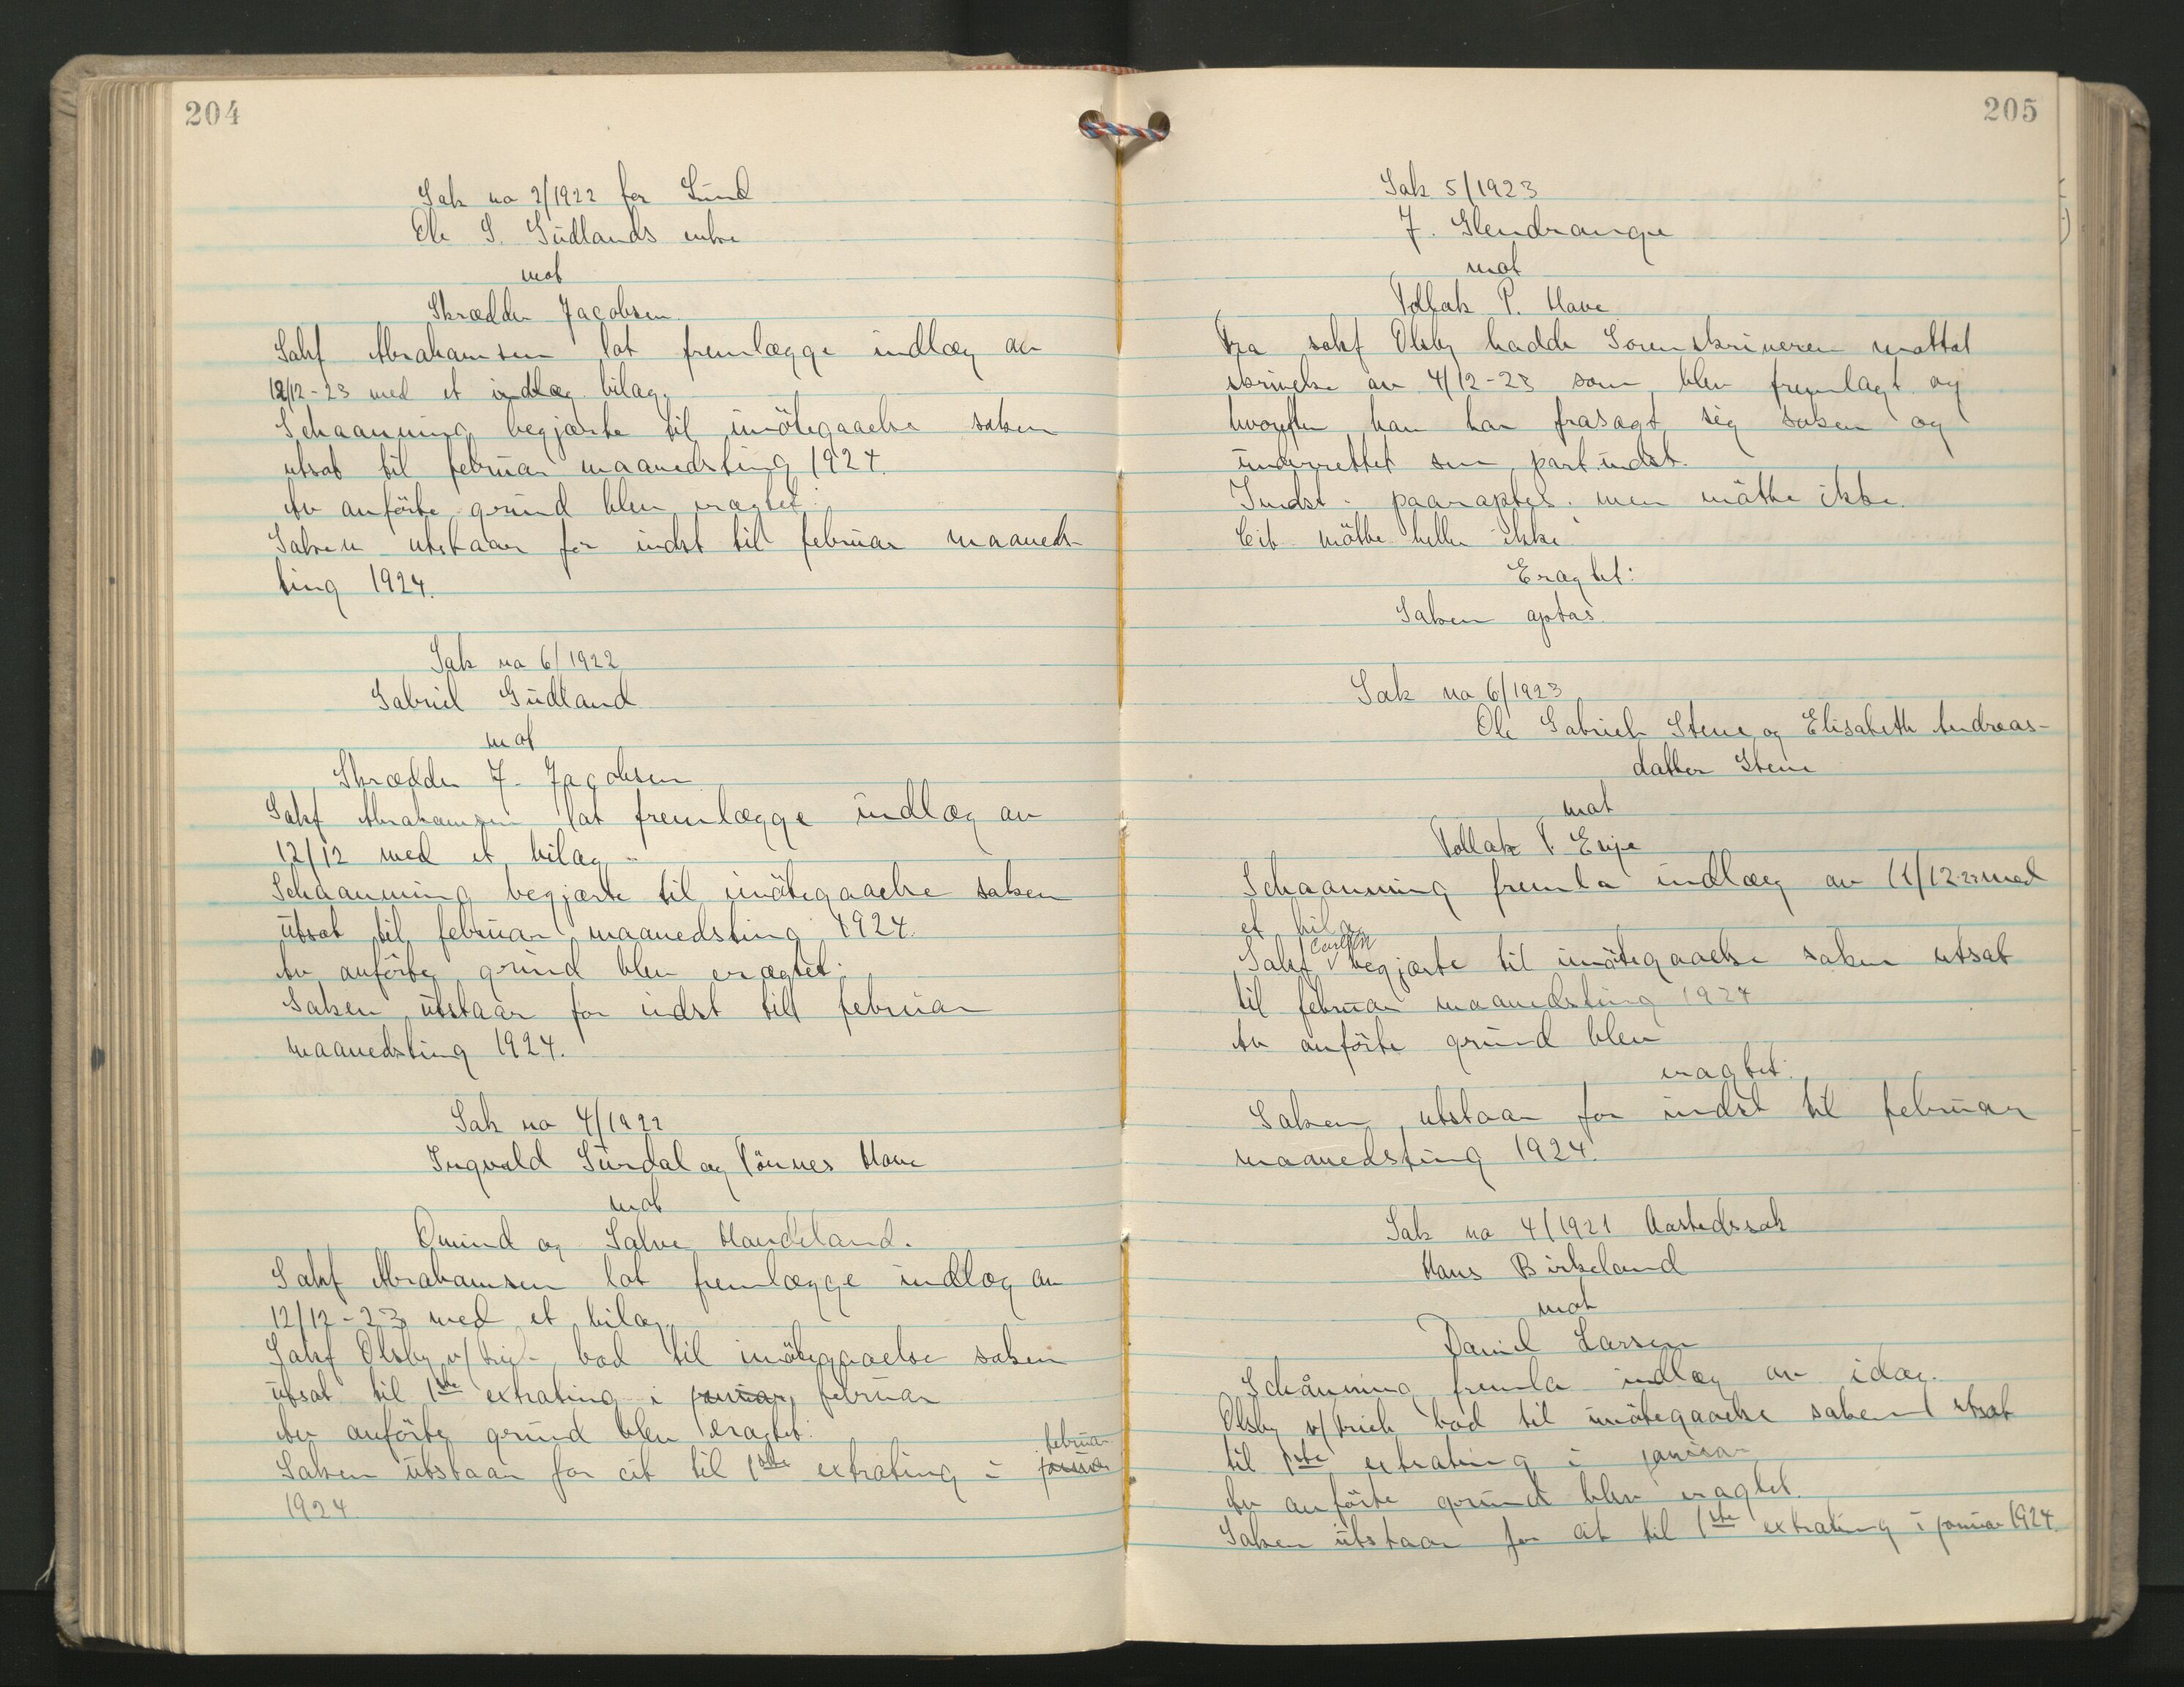 204
Sak no 2/1922 for Lund
Ole S. Gudlands enke
mot
Skrædder Jacobsen
Sakf Abrahamsen lot fremlægge indlæg av
12/12-23 med et indlæg bilag.
Schaanning begjærte til imötegaaelse saken
utsat til februar maanedsting 1924.
Av anförte grund blev eragtet:
Saken utstaar for indst til februar maaneds-
ting 1924.
Sak no 6/1922
Gabriel Gudland
mot
Skrædder J. Jacobsen
Sakf Abrahamsen lot fremlægge indlæg av
12/12 med et bilag
Schaanning begjærte til imötegaaelse saken
utsat til februar maanedsting 1924.
Av anförte grund blev eragtet:
Saken utstaar for indst till februar
maanedsting 1924.
Sak no 4/1922
Ingvald Surdal og Tönnes Have
mot
Omund og Salve Haudeland.
Sakf Abrahamsen lot fremlægge indlæg av
12/12-23 med et bilag
Sakf Olsby v/ bad til imötegaaelse saken
utsat til 1ste extrating i januar februar
Av anförte grund blev eragtet:
Saken utstaar for cit til 1ste extrating i januar februar
1924
205
Sak 5/1923
J. Glendrange
mot
Tollak P. Have
Fra sakf Olsby hadde Sorenskriveren mottat
skrivelse av 4/12-23 som blev fremlagt og
hvorefter han har frasagt sig saken og
underrettet sin part. indst.
Indst. paaraaptes. men mötte ikke.
Cit mötte heller ikke
Eragtet:
Saken optas
Sak no 6/1923
Ole Gabriels Stene og Elisabeth Andreas-
datter Stene
mot
Tollak T. Eeije
Schaanning fremla indlæg av 11/12-23 med
et bilag
Sakf Carlsen begjærte til imötegaaelse saken utsat
til februar maanedsting 1924
Av anförte grund blev
eragtet:
Saken utstaar for indst til februar
maanedsting 1924.
Sak no 4/1921 Aastedssak
Hans Birkeland
mot
Daniel Larsen
Schånning fremla indlæg av idag.
Olsby v/ bad til imötegaaelse saken utsat
til 1ste extrating i januar
Av anförte grund blev eragtet.
Saken utstaar for cit til 1ste extrating i januar 1924.